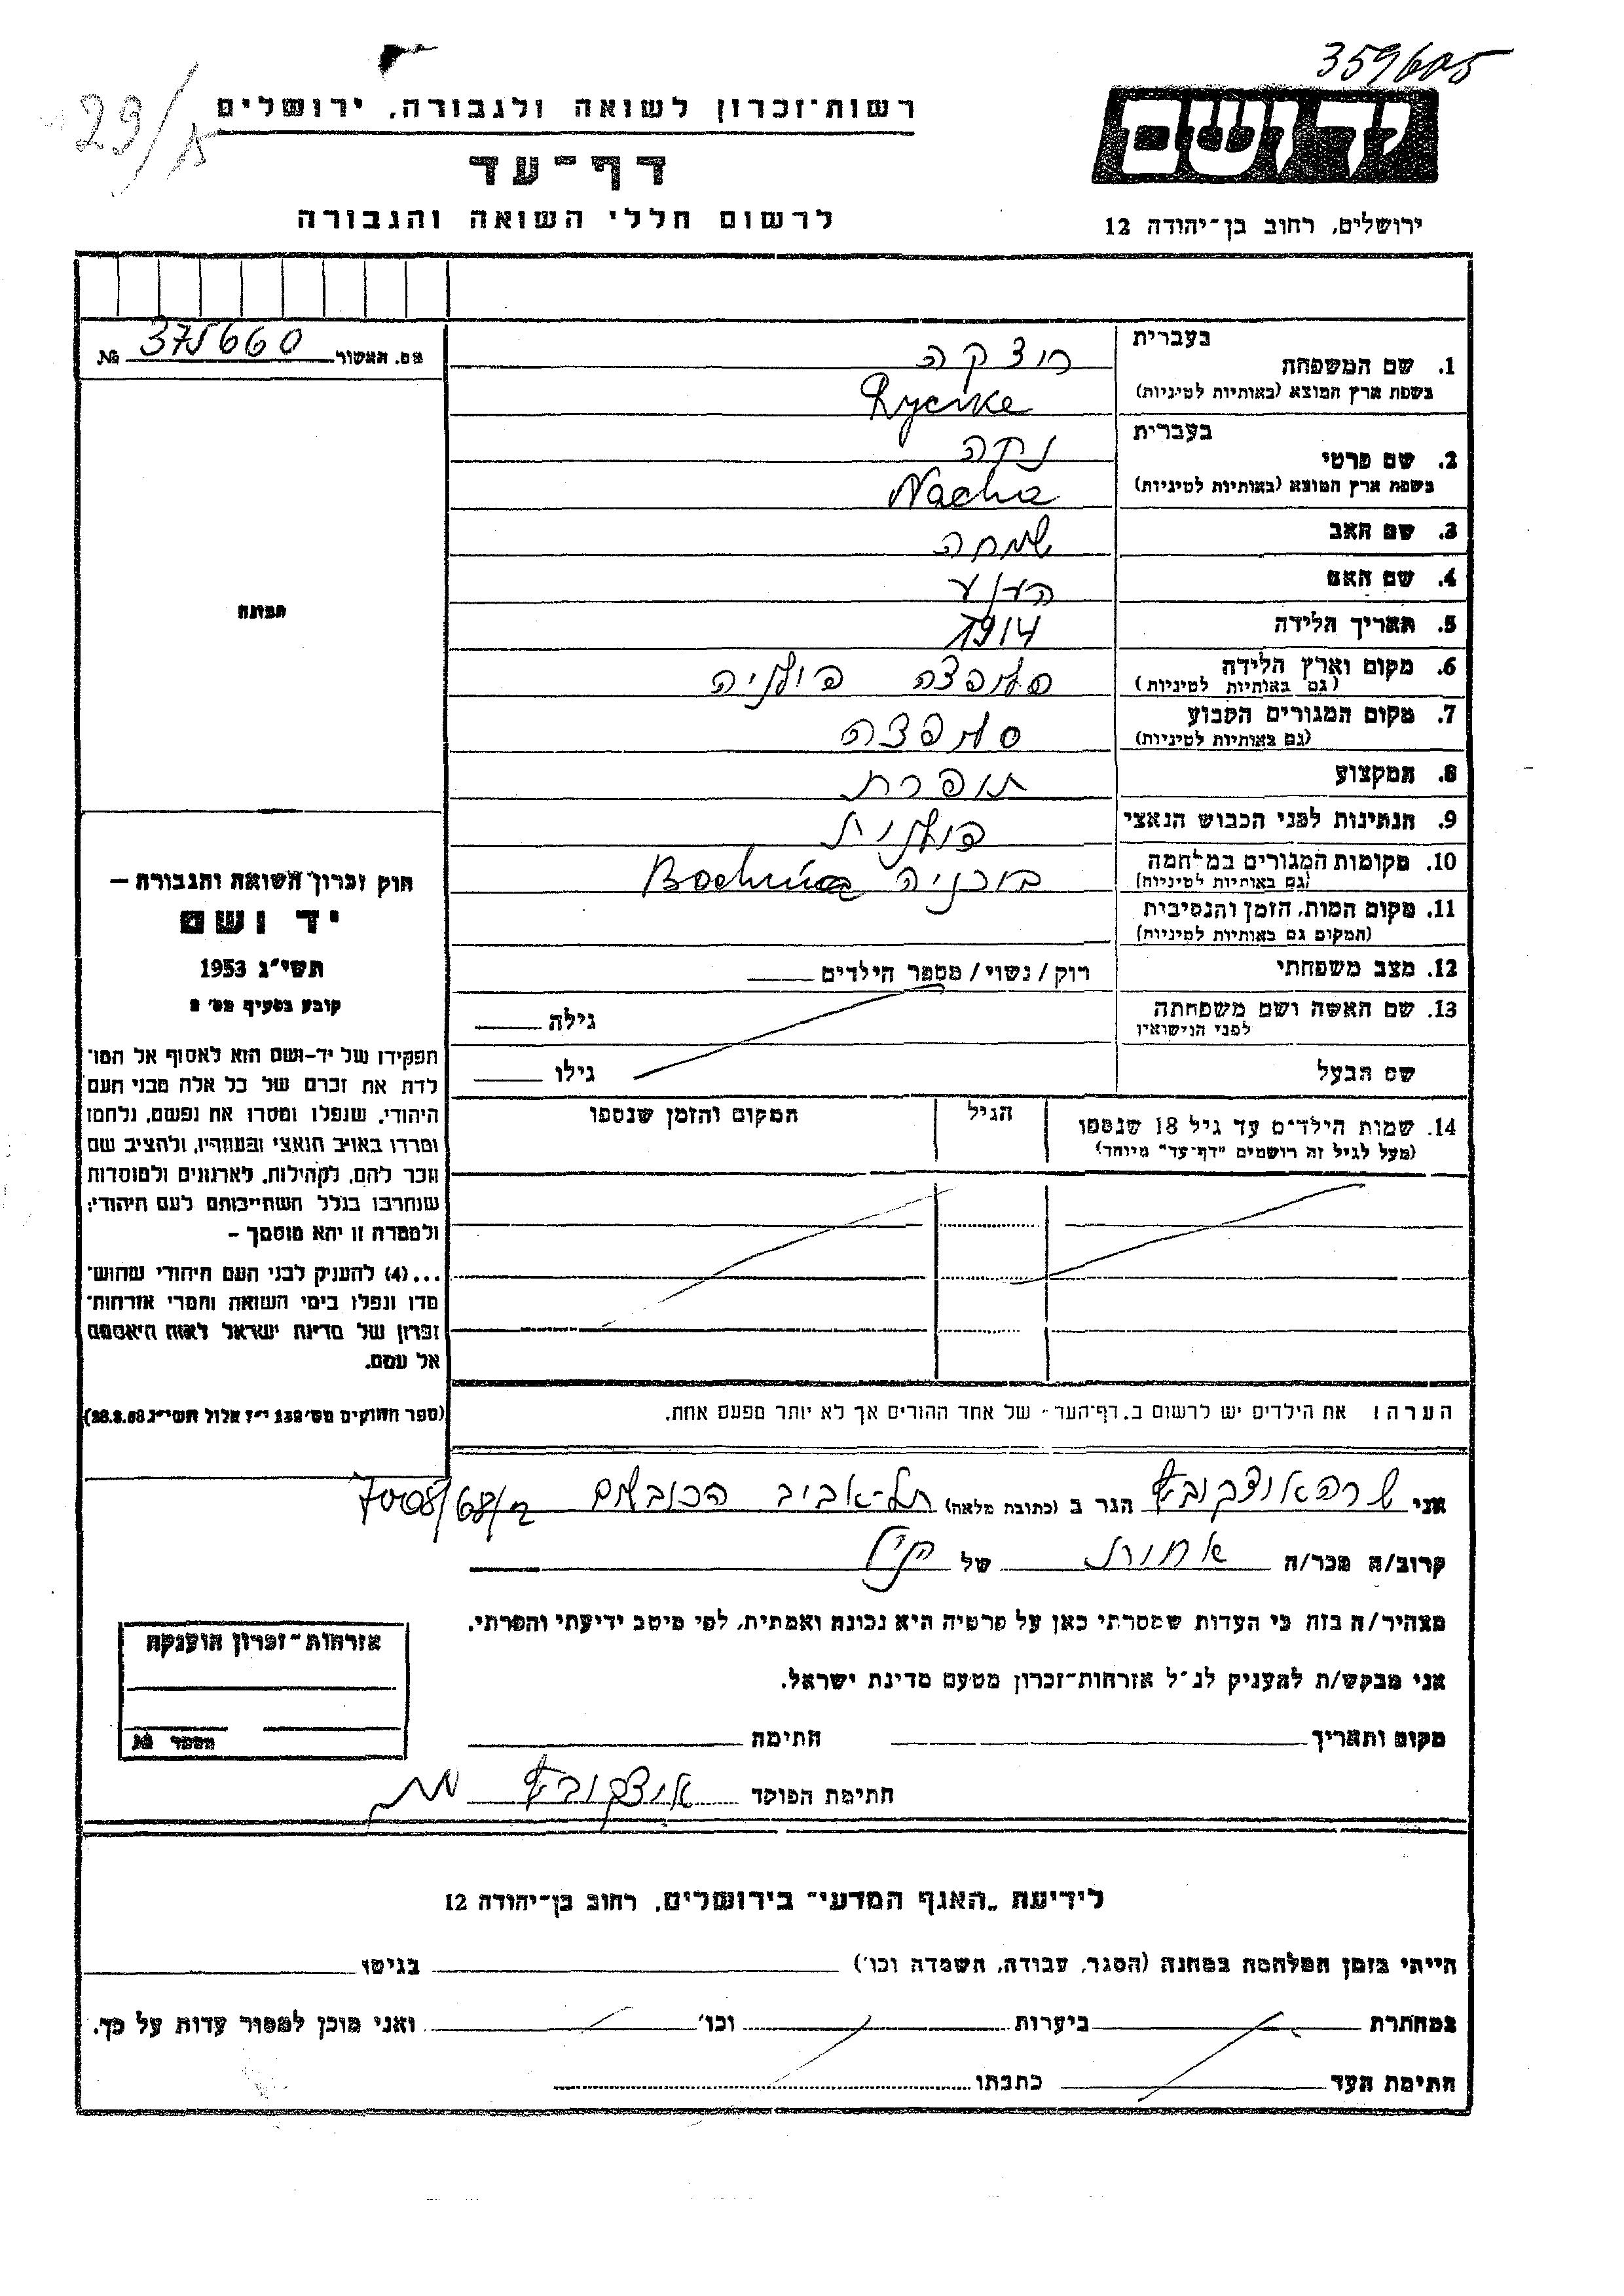 359605
29/
רשות-זכרון לשואה ולגבורה, ירושלים
יד ושם
דף-עד
לרשום חללי השואה והגבורה
ירושלים, רחוב בן-יהודה 12
מס. האשור 375660 №
1. שם המשפחה
בעברית
בשפת ארץ המוצא (באותיות לטיניות)
Rycnke
2. שם פרטי
בעברית
בשפת ארץ המוצא (באותיות לטיניות)
Nacha
3. שם האב שמחה
4. שם האם
5. תאריך הלידה 1914
6. מקום וארץ הלידה פולניה
(גם באותיות לטיניות)
7. מקום המגורים הקבוע
(גם באותיות לטיניות)
8. המקצוע תופרת
9. הנתינות לפני הכבוש הנאצי פולנית
10. מקומות המגורים במלחמה בוכניה Bochnia
(גם באותיות לטיניות)
11. מקום המות, הזמן והנסיבות
(המקום גם באותיות לטיניות)
12. מצב משפחתי רוק/נשוי/מספר הילדים
13. שם האשה ושם משפחתה גילה
לפני הנישואין
שם הבעל גילו
14. שמות הילדים עד גיל 18 שנספו הגיל המקום והזמן שנספו
(מעל לגיל זה רושמים "דף-עד" מיוחד)
הערה: את הילדים יש לרשום ב"דף-העד" של אחד ההורים אך לא יותר מפעם אחת.
תמונה
חוק זכרון השואה והגבורה —
יד ושם
תשי"ג 1953
קובע בסעיף מס' 2
תפקידו של יד-ושם הוא לאסוף אל המו-
לדת את זכרם של כל אלה מבני העם
היהודי, שנפלו ומסרו את נפשם, נלחמו
ומרדו באויב הנאצי ובעוזריו, ולהציב שם
וזכר להם, לקהילות, לארגונים ולמוסדות
שנחרבו בגלל השתייכותם לעם היהודי;
ולמטרה זו יהא מוסמך —
...(4) להעניק לבני העם היהודי שהוש-
מדו ונפלו בימי השואה והמרי אזרחות-
זכרון של מדינת ישראל לאות היאספם
אל עמם.
(ספר החוקים מס' 132 י"ז אלול תשי"ג 28.8.53)
אני שרה הגר ב (כתובת מלאה) תל-אביב
קרוב/ה מכר/ה אחות של
מצהיר/ה בזה כי העדות שמסרתי כאן על פרטיה היא נכונה ואמתית, לפי מיטב ידיעתי והכרתי.
אני מבקש/ת להעניק לנ"ל אזרחות-זכרון מטעם מדינת ישראל.
מקום ותאריך חתימה
חתימת הפוקד
אזרחות-זכרון הוענקה
מספר №
לידיעת "האגף המדעי" בירושלים, רחוב בן-יהודה 12
הייתי בזמן המלחמה במחנה (הסגר, עבודה, השמדה וכו') בגיטו
במחתרת ביערות וכו' ואני מוכן למסור עדות על כך.
חתימת העד כתבתו